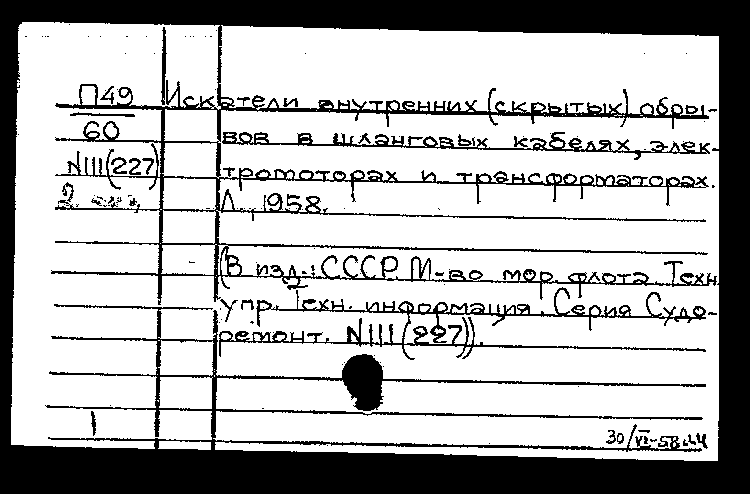 П49
60
N111(227)
2 экз,
Искатели внутренних (скрытых) обры-
вов в шланговых кабелях, элек-
тромоторах и трансформаторах.
Л., 1958.
(В изд.: СССР. М-во мор. флота. Техн.
упр. Техн. информация. Серия Судо-
ремонт. N111(227)).
1
30/VI-58.